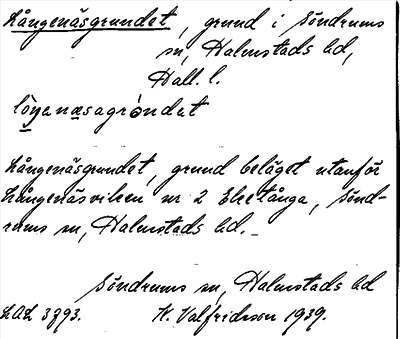 Långenäsgrundet, grund i Söndrums
sn, Halmstads hd,
Hall. l.
lòŋenæsagróndət
Långenäsgrundet, grund beläget utanför
Långenäsviken nr 2 Eketånga, Sönd-
rums sn, Halmstads hd.
Söndrums sn, Halmstads hd
LAL 3793. H. Valfridsson 1939.